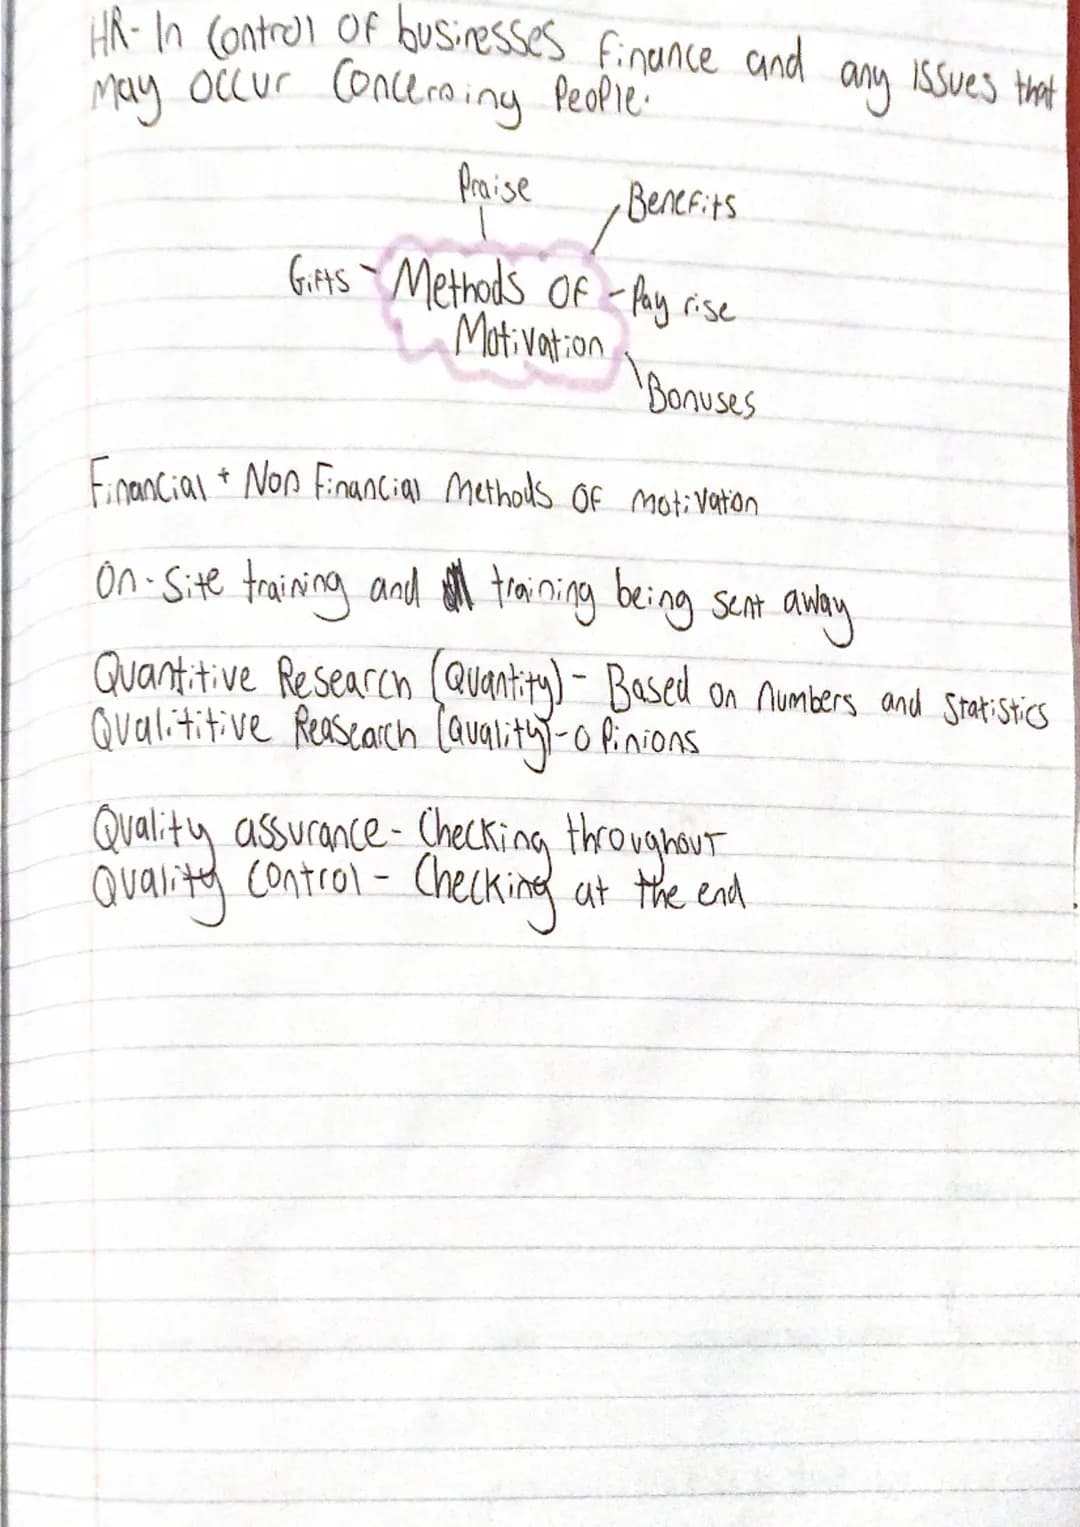 HR- In Control Of businesses finance and any issues that
may occur Concerning People.
Praise
Benefits
Gifts
Methods Of
Pay rise
Motivation
Bonuses
Financial + Non Financial Methods Of motivaton
On-Site training and training being sent away
Quantitive Research (Quantity) - Based on numbers and Statistics
Qualititive Reasearch (Quality) - Opinions
Quality assurance - Checking throughout
Quality Control - Checking at the end